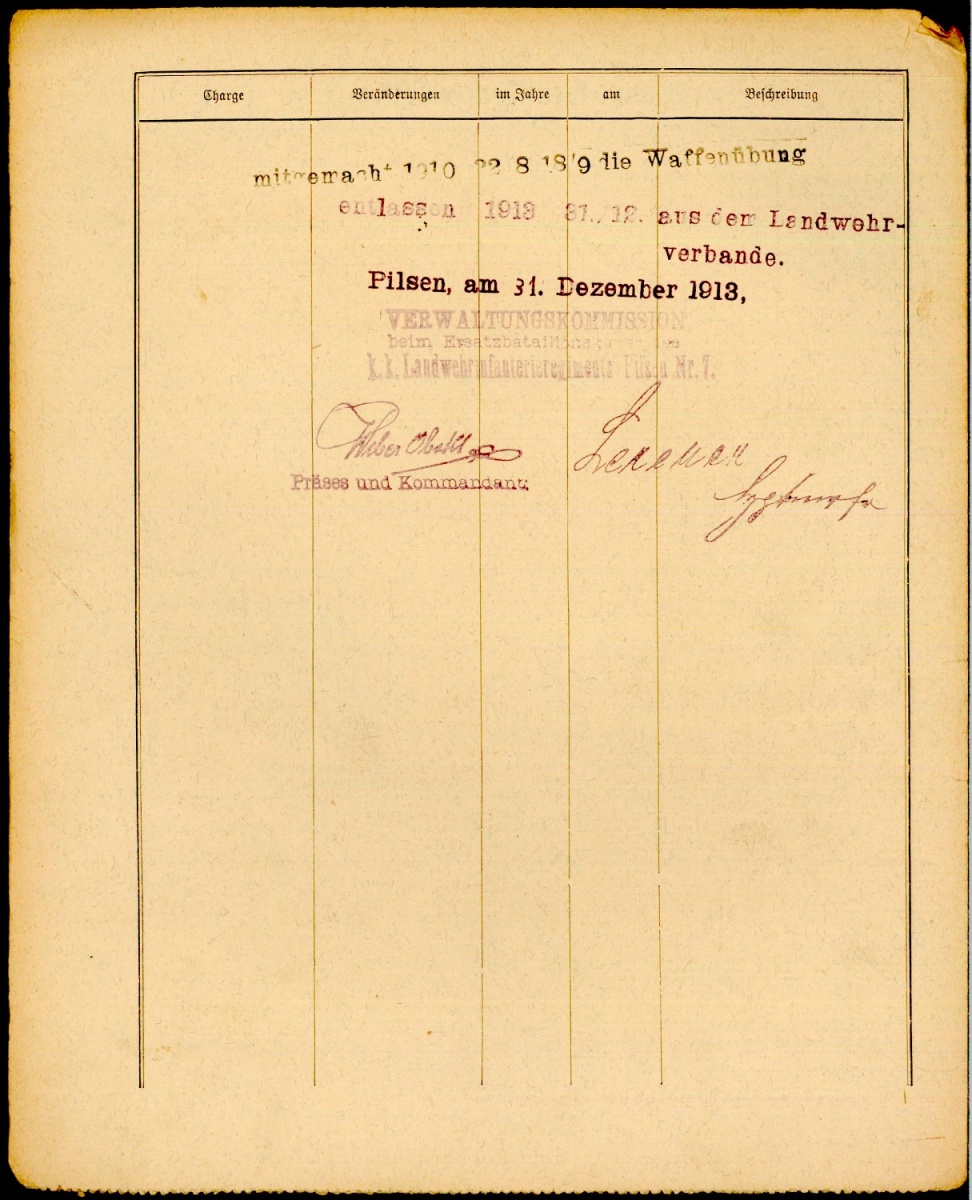 Charge Veränderungen im Jahre am Beschreibung
mitgemacht 1910 22 8 18/9 die Waffenübung
entlassen 1913 31./12. aus dem Landwehr-
verbande.
Pilsen, am 31. Dezember 1913,
VERWALTUNGSKOMMISSION
beim Ersatzbataillons des
k.k. Landwehrinfanterieregiments Pilsen Nr. 7.
Weber
Präses und Kommandant: